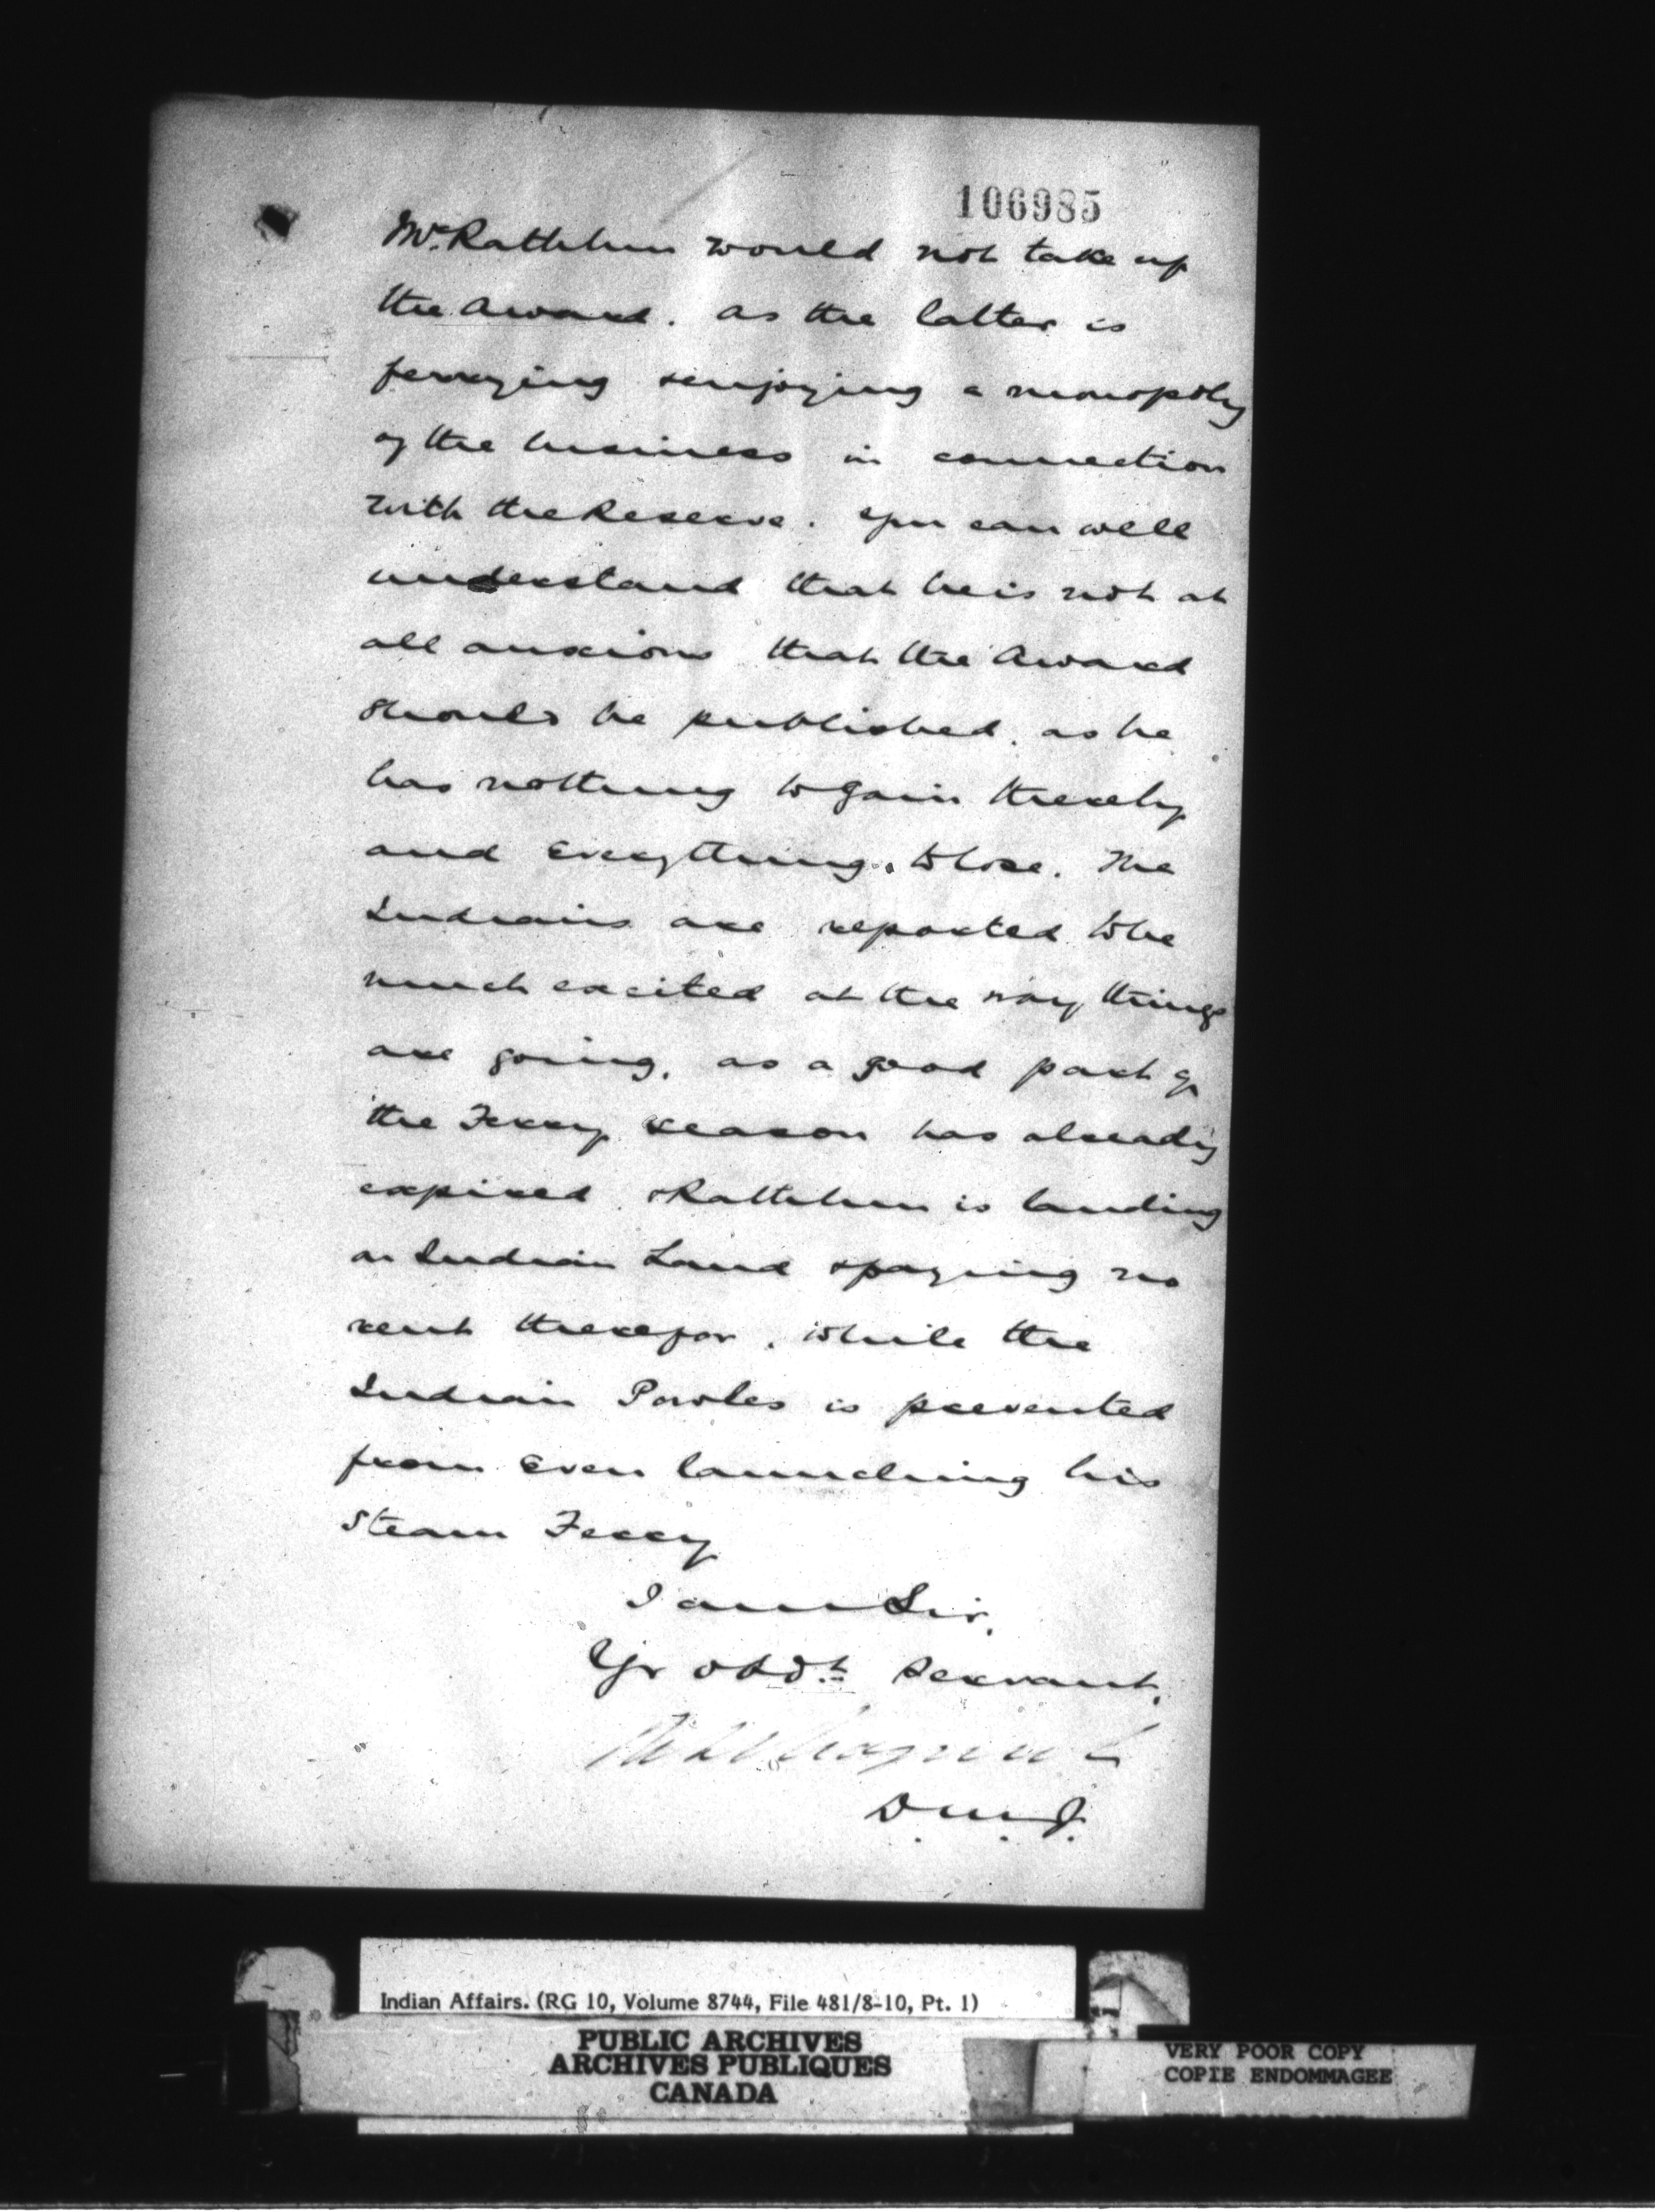 106985
Mr. Rathbun would not take up
the Award. as the latter is
ferrying & enjoying a monopoly
of the business in connection
with the Reserve. you can well
understand that he is not at
all anxious that the Award
should be published. as he
has nothing to gain thereby
and everything to lose. The
Indians are reported to be
much excited at the way things
are going, as a good part of
the Ferry season has already
expired & Rathbun is landing
on Indian Land & paying no
rent therefor. while the
Indian Powles is prevented
from even launching his
Steam Ferry
I am Sir,
Yr obdt servant,
D. M. J.
Indian Affairs. (RG 10, Volume 8744, File 481/8-10, Pt. 1)
PUBLIC ARCHIVES
ARCHIVES PUBLIQUES
CANADA
VERY POOR COPY
COPIE ENDOMMAGEE